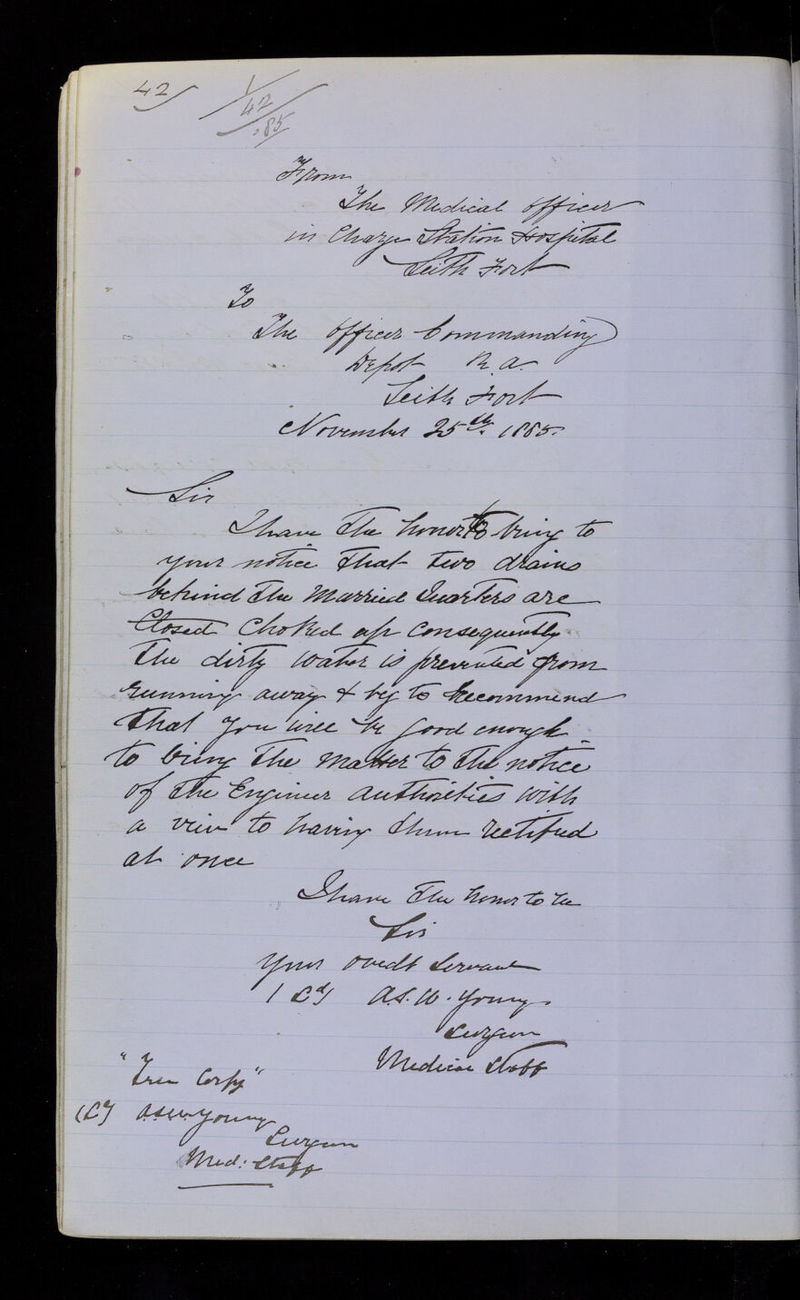 42
1/42/85
From
The Medical Officer
in Charge Station Hospital
Leith Fort
To
The Officer Commanding
Depot R.A.
Leith Fort
November 25th. 1885.
Sir
I have the honor to bring to
your notice that two drains
behind the Married Quarters are
Closed Choked up consequently
the dirty water is prevented from
running away & beg to recommend
that you will be good enough
to bring the matter to the notice
of the Engineer authorities with
a view to having them rectified
at once
I have the honor to be
Sir
Your obedt Servant
(Sd) A.S.W. Young
Surgeon
Medical Staff
"True Copy"
(Sd) A.S.W. Young
Surgeon
Med: Staff